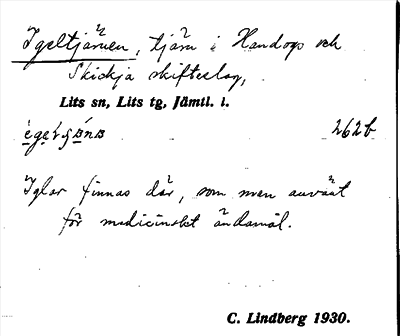 Igeltjärnen, tjärn i Handogs och
Skickja skifteslag,
Lits sn, Lits tg, Jämtl. l.
262b
Iglar finnas där, som man använt
för medicinskt ändamål.
C. Lindberg 1930.